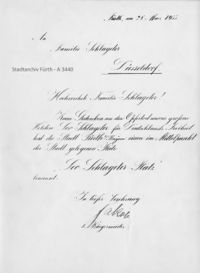 Fürth, am 26. Mai 1933
An
Familie Schlageter
Stadtarchiv Fürth - A 3440
Düsseldorf.
Hochverehrte Familie Schlageter!
Zum Gedenken an den Opfertod unseres großen
Helden Leo Schlageter für Deutschlands Freiheit
hat die Stadt Fürth i. Bayern einen im Mittelpunkt
der Stadt gelegenen Platz
"Leo Schlageter Platz"
benannt.
In tiefer Verehrung